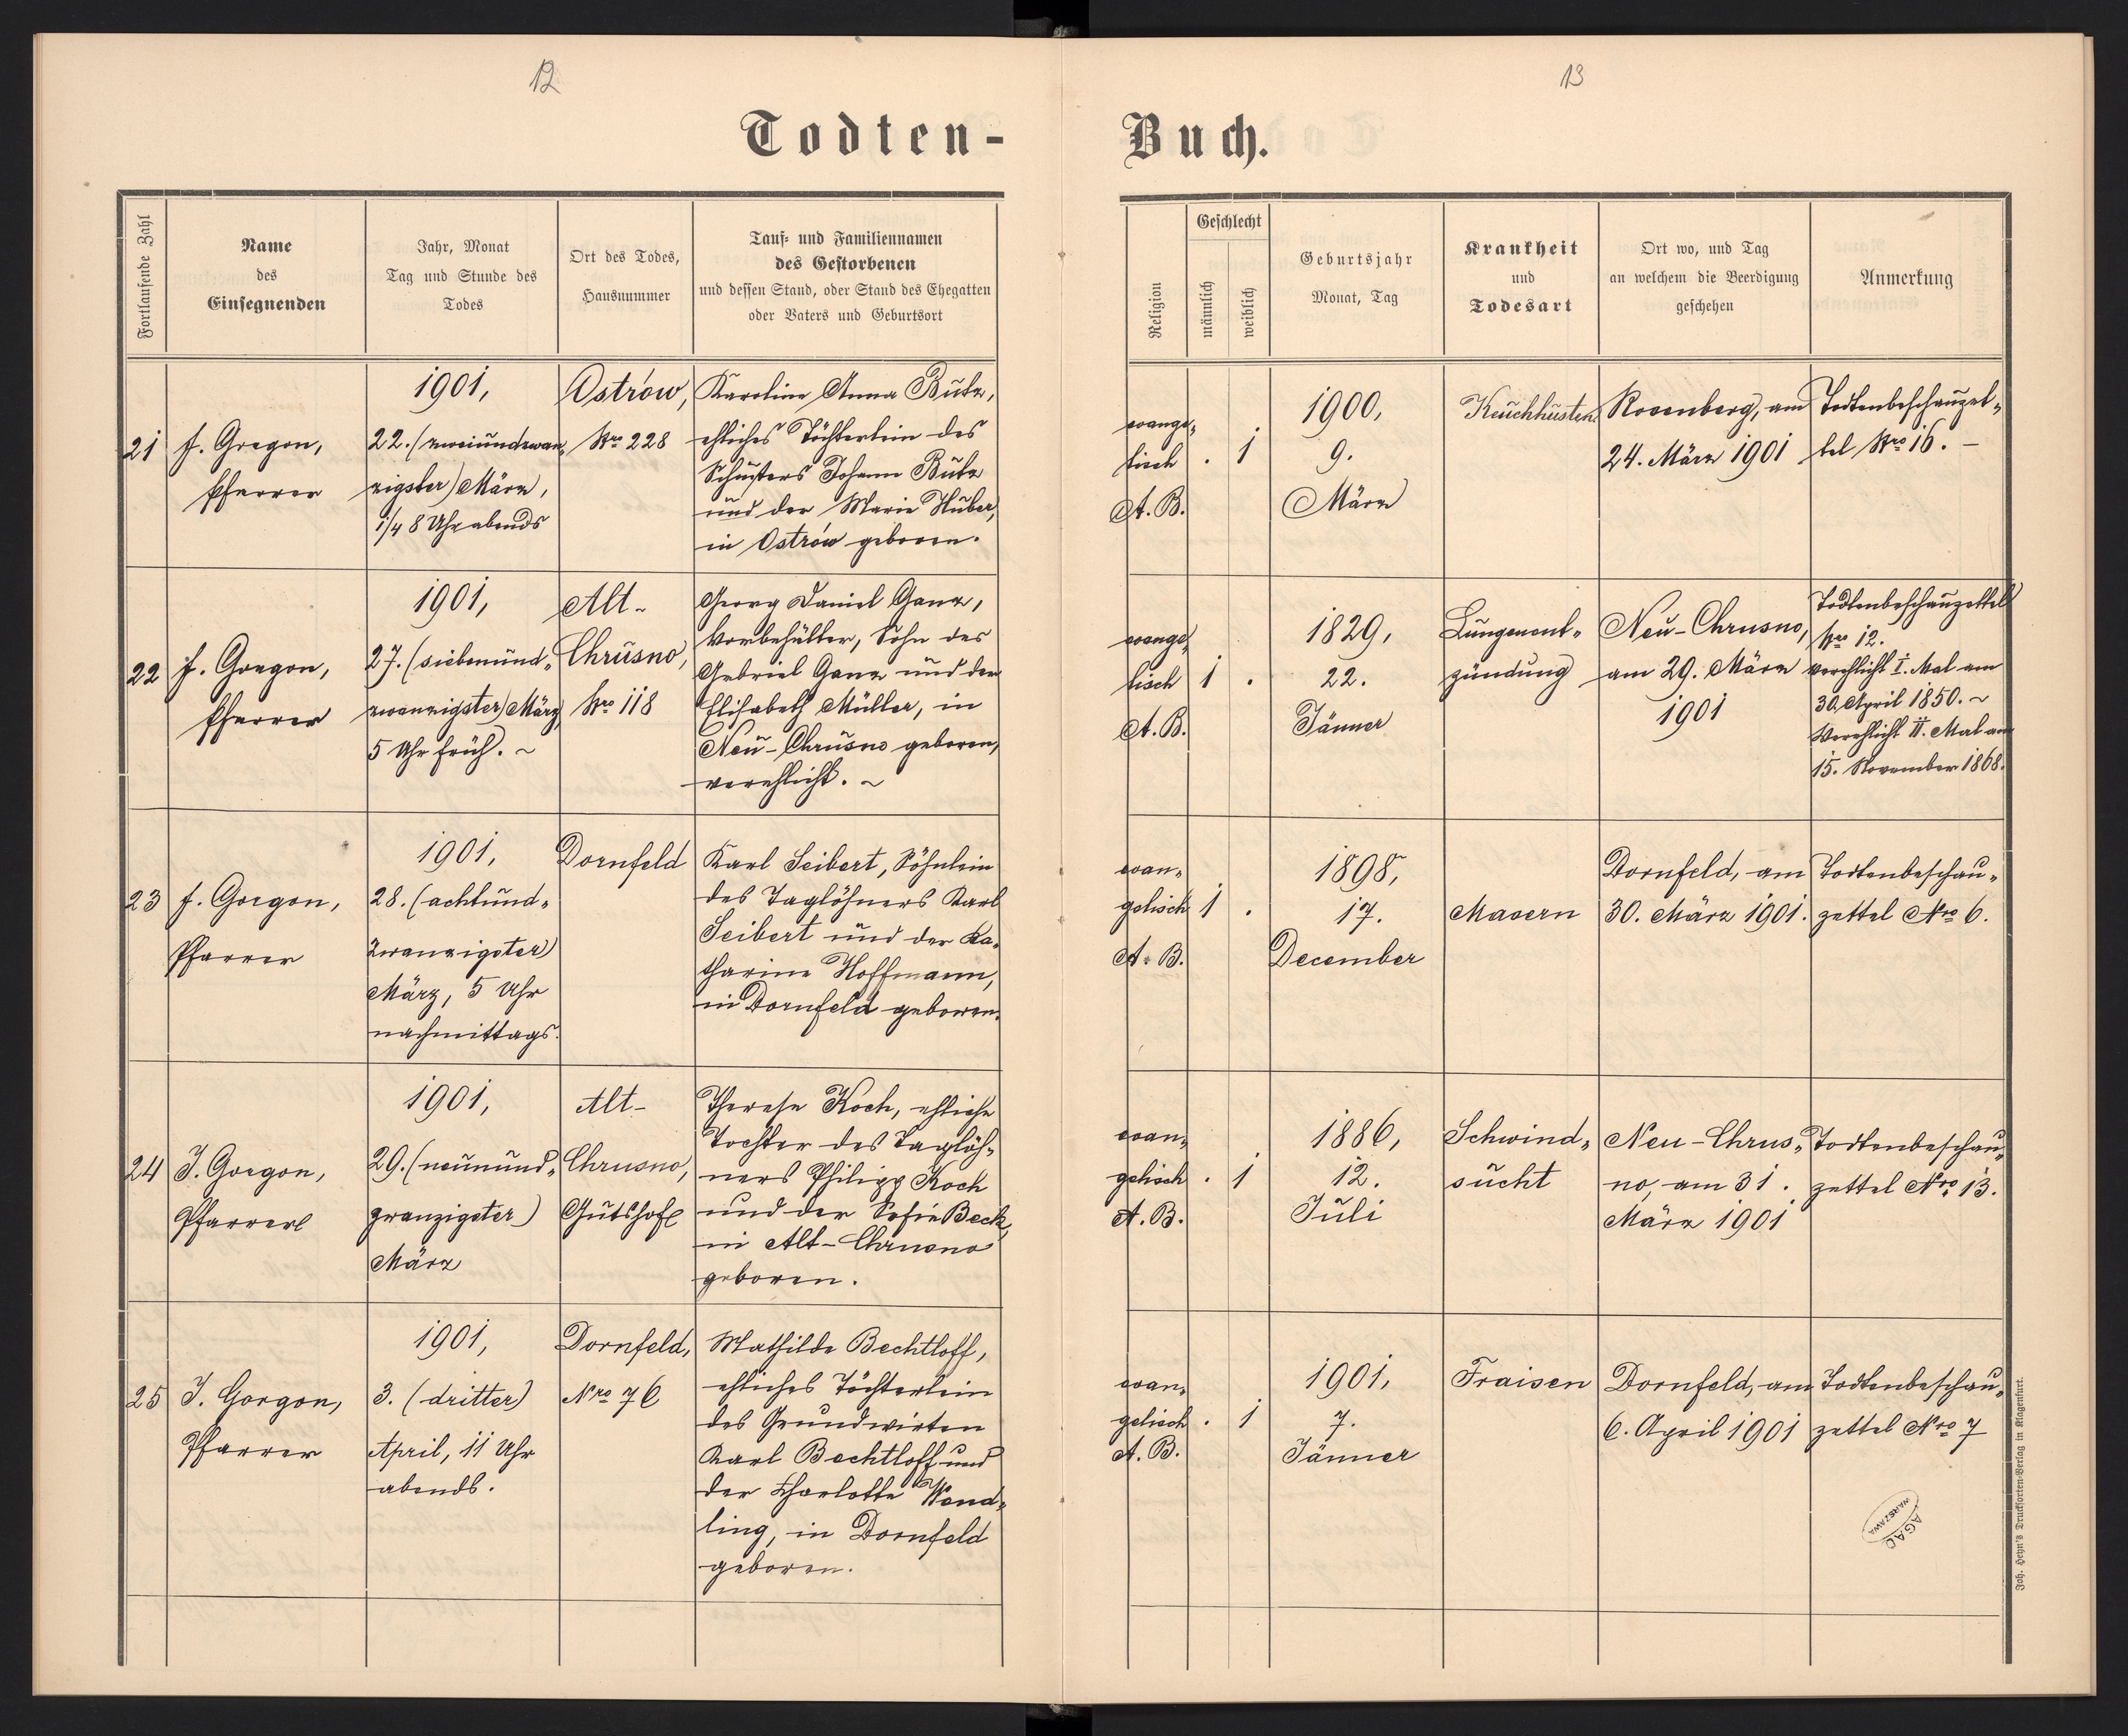 12
13
Todten-
Buch.
Fortlaufende Zahl
Name
des
Einsegnenden
Jahr, Monat
Tag und Stunde des
Todes
Ort des Todes,
Hausnummer
Tauf- und Familiennamen
des Gestorbenen
und dessen Stand, oder Stand des Ehegatten
oder Vaters und Geburtsort
Religion
Geschlecht
männlich
weiblich
Geburtsjahr
Monat, Tag
Krankheit
und
Todesart
Ort wo, und Tag
an welchem die Beerdigung
geschehen
Anmerkung
21
J. Gorgon,
Pfarrer
1901,
22. (zweiundzwan-
zigster) März,
1/4 8 Uhr abends
Ostrów,
Nro 228
Karoline Anna Butz,
ehliches Töchterlein des
Schusters Johann Butz
und der Marie Huber,
in Ostrów geboren.
evange-
lisch
A. B.
. 1
1900,
9.
März
Keuchhusten
Rosenberg, am
24. März 1901
Todtenbeschauzet-
tel Nro 16. –
22
J. Gorgon,
Pfarrer
1901,
27. (siebenund-
zwanzigster) März,
5 Uhr früh. ~
Alt-
Chrusno,
Nro 118
Georg Daniel Ganz,
Vorbehälter, Sohn des
Gabriel Ganz und der
Elisabeth Müller, in
Neu-Chrusno geboren,
verehlicht. ~
evange-
lisch
A. B.
1 .
1829,
22.
Jänner
Lungenent-
zündung
Neu-Chrusno,
am 29. März
1901
Todtenbeschauzettel
Nro 12.
verehlicht I. Mal am
30. April 1850. ~
Verehlicht II. Mal am
15. November 1868.
23
J. Gorgon,
Pfarrer
1901,
28. (achtund-
zwanzigster)
März, 5 Uhr
nachmittags.
Dornfeld
Karl Seibert, Söhnlein
des Taglöhners Karl
Seibert und der Ka-
tharine Hoffmann,
in Dornfeld geboren.
evan-
gelisch
A. B.
1 .
1898,
17.
December
Masern
Dornfeld, am
30. März 1901.
Todtenbeschau-
zettel Nro 6.
24
J. Gorgon,
Pfarrer
1901,
29. (neunund-
zwanzigster)
März
Alt-
Chrusno,
Gutshof
Therese Koch, ehliche
Tochter des Taglöh-
ners Philipp Koch
und der Sofie Beck,
in Alt-Chrusno
geboren.
evan-
gelisch
A. B.
. 1
1886,
12.
Juli
Schwind-
sucht
Neu-Chrus-
no, am 31.
März 1901
Todtenbeschau-
zettel Nro 13.
25
J. Gorgon,
Pfarrer
1901,
3. (dritter)
April, 11 Uhr
abends.
Dornfeld,
Nro 76
Mathilde Bechtloff,
ehliches Töchterlein
des Grundwirten
Karl Bechtloff und
der Charlotte Wend-
ling, in Dornfeld
geboren.
evan-
gelisch
A. B.
. 1
1901,
7.
Jänner
Fraisen
Dornfeld, am
6. April 1901
Todtenbeschau-
zettel Nro 7
AGAD
WARSZAWA
Joh. Heyn's Drucksorten-Verlag in Klagenfurt.